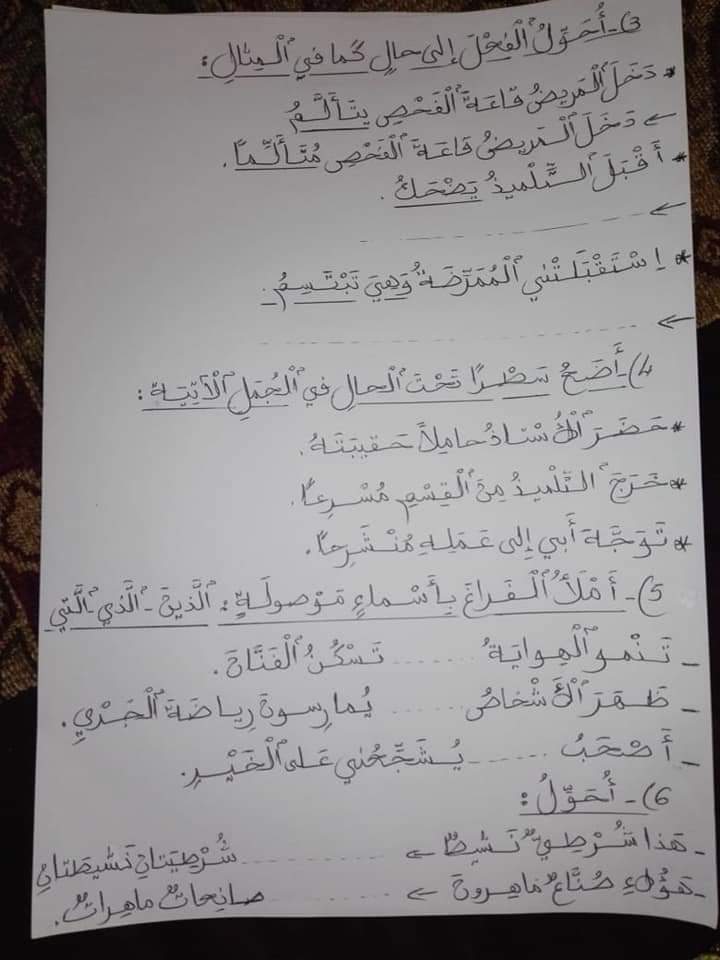 3)- أُحَوِّلُ ٱلْفِعْلَ إلى حالٍ كَما في ٱلْمِثالِ :
* دَخَلَ ٱلْمَريضُ قاعَةَ ٱلْفَحْصِ يتَأَلَّمُ
← دَخَلَ ٱلْمَريضُ قاعَةَ ٱلْفَحْصِ مُتَأَلِّمًا .
* أَقْبَلَ ٱلتِّلْميذُ يَضْحَكُ .
← ....................
* اِسْتَقْبَلَتْني ٱلْمُمَرِّضَةُ وَهِيَ تَبْتَسِمُ .
← ....................
4)- أَضَعُ سَطْرًا تَحْتَ ٱلْحالِ في ٱلْجُمَلِ ٱلْآتِيَةِ :
* حَضَرَ ٱلْأُسْتاذُ حامِلاً حَقيبَتَهُ .
* خَرَجَ ٱلتِّلْميذُ مِنَ ٱلْقِسْمِ مُسْرِعًا .
* تَوَجَّهَ أَبي إِلى عَمَلِهِ مُنْشَرِحًا .
5)- أَمْلَأُ ٱلْفَراغَ بِأَسْماءٍ مَوْصولَةٍ : ٱلَّذينَ - ٱلَّذي - ٱلَّتي
- تَنْمو ٱلْهِوايَةُ ........ تَسْكُنُ ٱلْفَنَّانَ .
- ظَهَرَ ٱلْأَشْخاصُ ...... يُمارِسونَ رِياضَةَ ٱلْجَرْيِ .
- أَصْحَبُ ........ يُشَجِّعُني عَلى ٱلْخَيْرِ .
6)- أُحَوِّلُ :
- هَذا شُرْطِيٌّ نَشيطٌ ← .......... شُرْطِيَتانِ نَشيطَتانِ
- هَؤُلاءِ صُنَّاعٌ ماهِرونَ ← .......... صانِعاتٌ ماهِراتٌ .